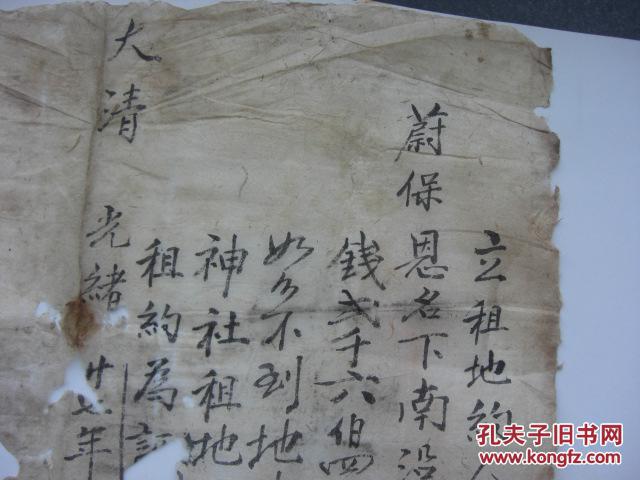 立租地約人
蔚保恩名下南沿
錢弍千六伯四
如分不到地
神社租地
租約為証
大清光緒廿七年
孔夫子旧书网
www.kongfz.com